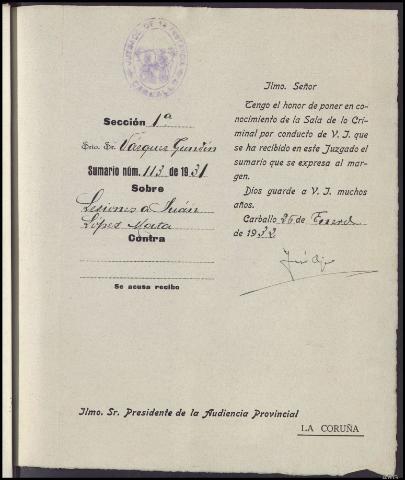 JUZGADO DE 1ª INSTANCIA
CARBALLO
Sección 1ª
Srio. Sr. Vázquez Gundín
Sumario núm. 113 de 1931
Sobre
Lesiones a Juán
López Mata
Contra
Se acusa recibo
Ilmo. Señor
Tengo el honor de poner en co-
nocimiento de la Sala de lo Cri-
minal por conducto de V. I. que
se ha recibido en este Juzgado el
sumario que se expresa al mar-
gen.
Dios guarde a V. I. muchos
años.
Carballo 26 de Enero
de 1932
Ilmo. Sr. Presidente de la Audiencia Provincial
LA CORUÑA